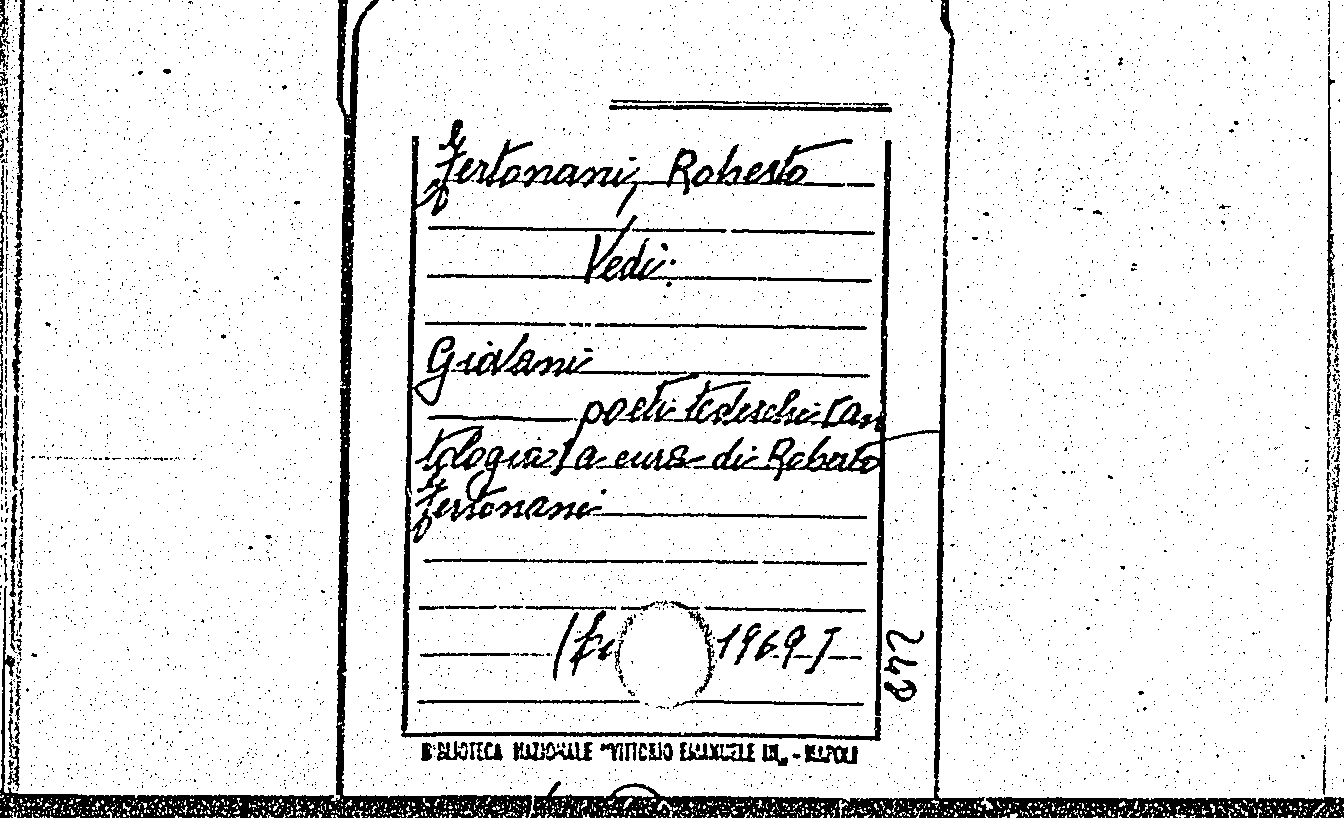 Fertonani, Roberto
Vedi:
Giovani
poeti tedeschi [an
tologia] a cura di Roberto
Fertonani
1969]
248
BIBLIOTECA NAZIONALE "VITTORIO EMANUELE III" - NAPOLI